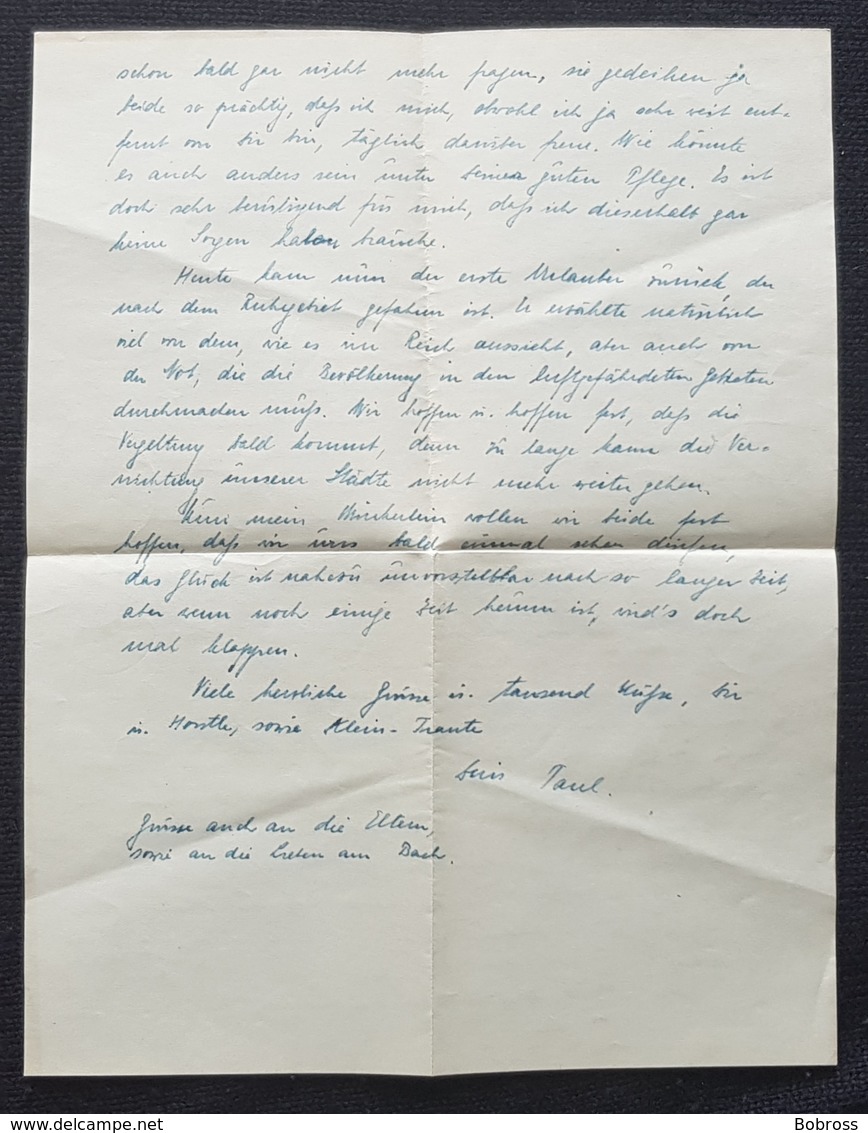 schon bald gar nicht mehr fragen, sie gedeihen ja
beide so prächtig, daß ich mich, obwohl ich ja sehr weit ent-
fernt von Dir bin, täglich darüber freue. Wie könnte
es auch anders sein unter Deiner guten Pflege. Es ist
doch sehr beruhigend für mich, daß ich dieserhalb gar
keine Sorgen haben brauche.
Heute kam nun der erste Urlauber zurück, der
nach dem Ruhrgebiet gefahren ist. Er erzählte natürlich
viel von dem, wie es im Reich aussieht, aber auch von
der Not, die die Bevölkerung in den luftgefährdeten Gebieten
durchmachen muß. Wir hoffen u. hoffen fest, daß die
Vergeltung bald kommt, denn zu lange kann die Ver-
nichtung unserer Städte nicht mehr weiter gehen.
Nun mein wollen wir beide fest
hoffen, daß wir uns bald einmal sehen dürfen,
das Glück ist nahezu unvorstellbar nach so langer Zeit,
aber wenn noch einige Zeit herum ist, wird's doch
mal klappen.
Viele herzliche Grüsse u. tausend Küße, Dir
u. Horstle, sowie Klein-Traute
Dein Paul.
Grüsse auch an die Eltern,
sowie an die Lieben am Bach.
Bobross